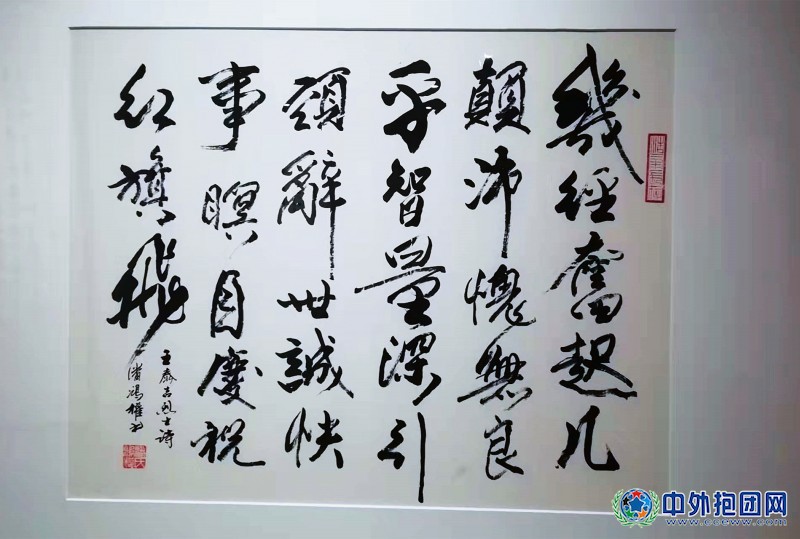 幾经奮起几
顛沛愧無良
平智量深引
頸辭世誠快
事瞑目慶祝
红旗飛
王泰吉烈士诗
中外抱团网
www.ccew.com